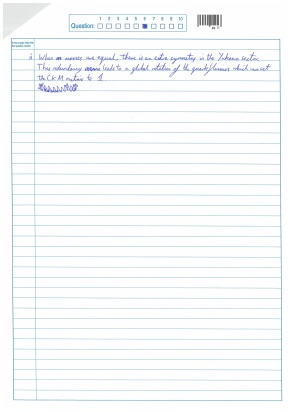 1 2 3 4 5 6 7 8 9 10
Question:
ii When masses are equal, there is an extra symmetry in the Yukawa sector.
This redundancy leads to a global rotation of the quarks/flavours which can set
the CKM matrix to 1